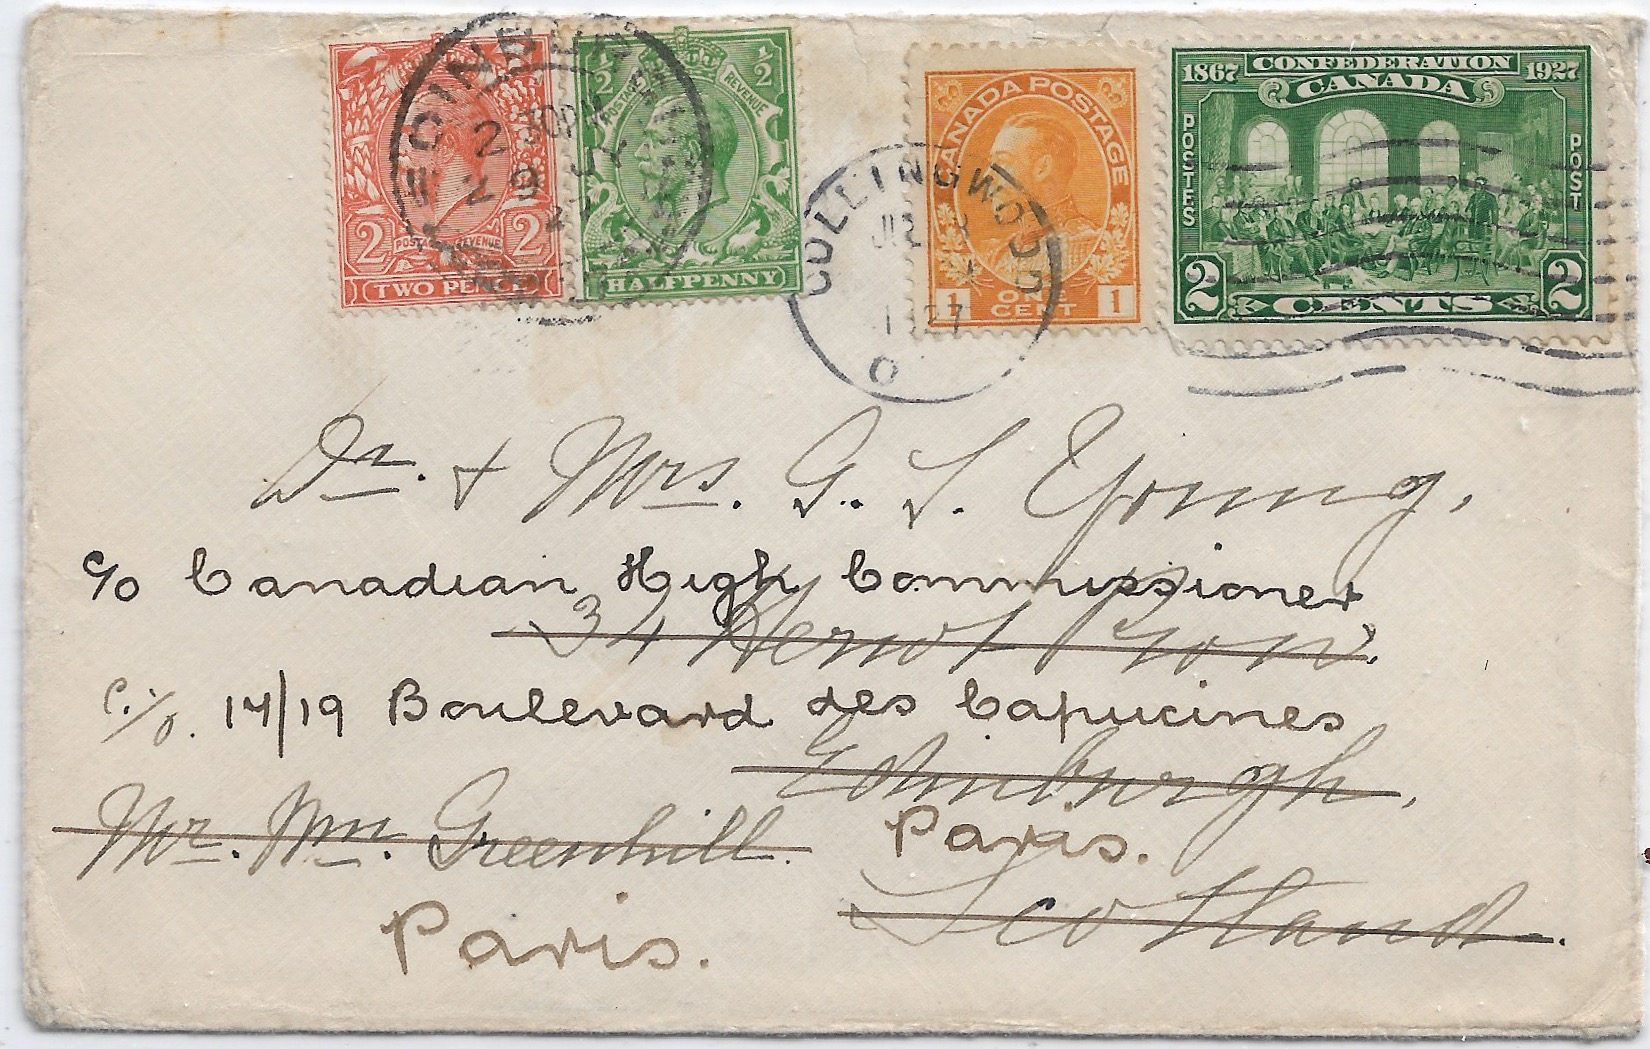 ½ ½
POSTAGE REVENUE
2 2
POSTAGE REVENUE
TWO PENCE
HALFPENNY
EDINBURGH
CANADA POSTAGE
1 1
ONE
CENT
1867 CONFEDERATION 1927
CANADA
POSTES POST
2 CENTS 2
COLLINGWOOD
JUL
1927
O
Dr. + Mrs. G. S. Young,
c/o Canadian High Commissioner
34 Heriot Row.
c/o. 17/19 Boulevard des Capucines
Edinburgh,
Mr. Wm. Greenhill.
Paris.
Scotland.
Paris.